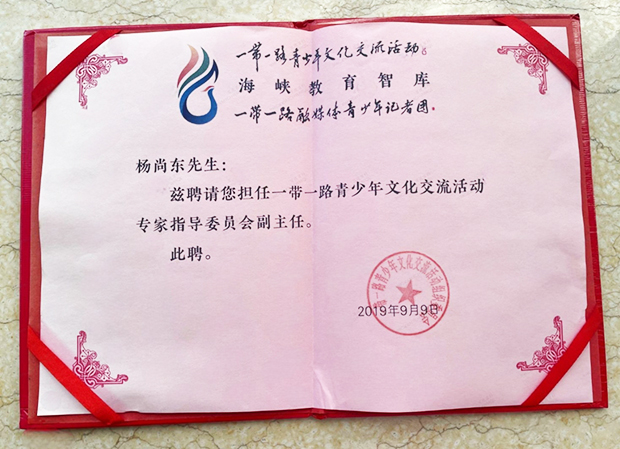 一带一路青少年文化交流活动
海峡教育智库
一带一路融媒体青少年记者团
杨尚东先生：
兹聘请您担任一带一路青少年文化交流活动
专家指导委员会副主任。
此聘。
一路青少年文化交流活动组织委员会
2019年9月9日